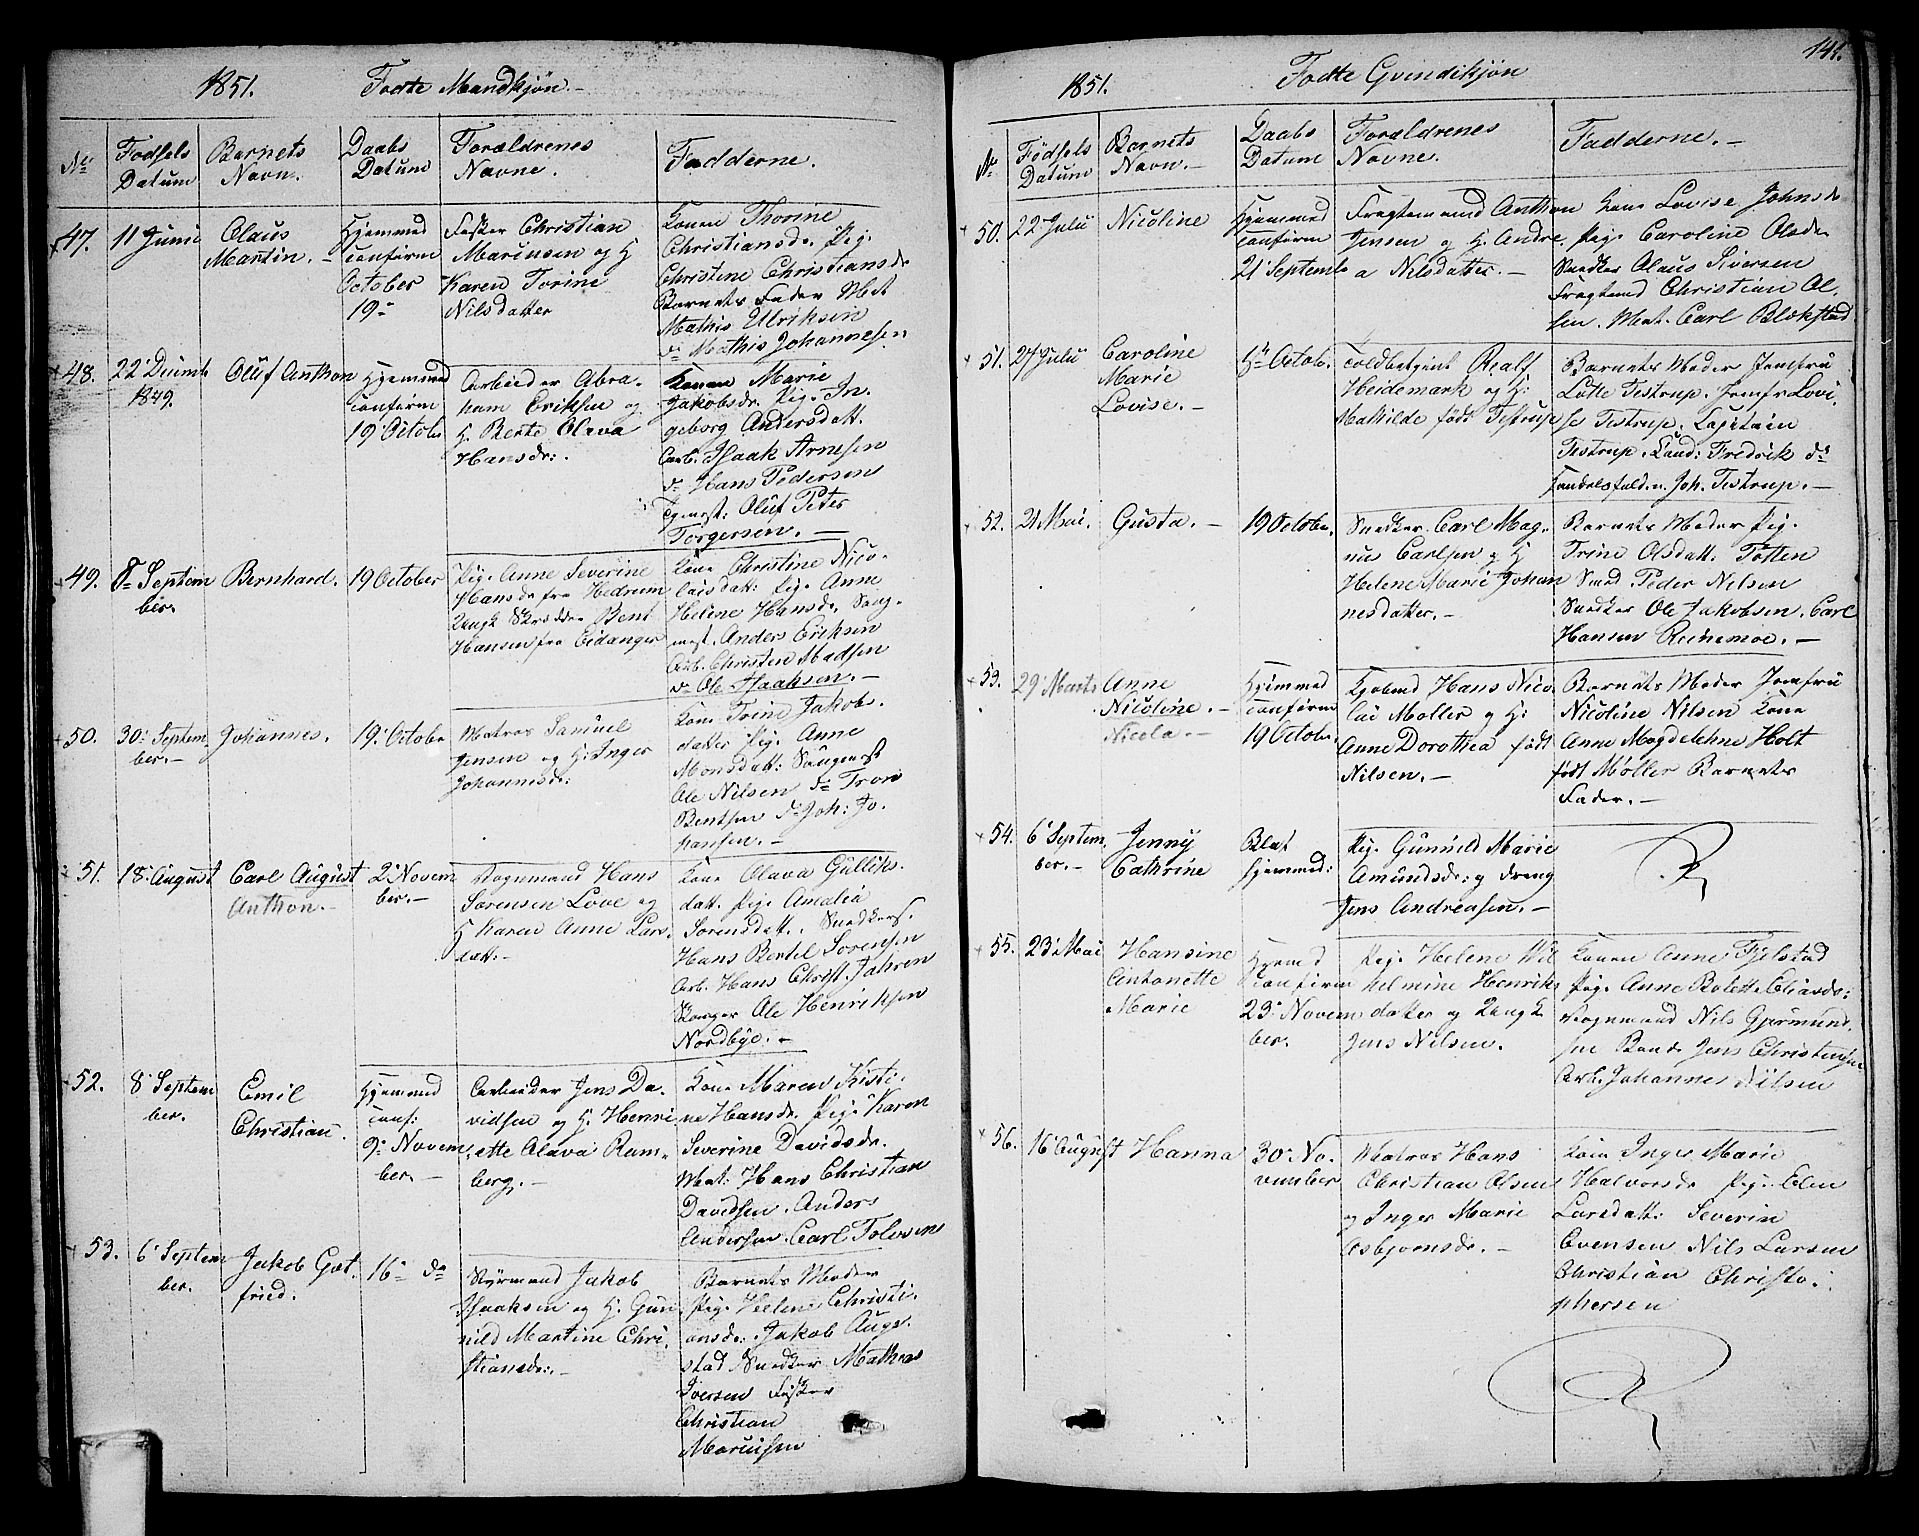 1851. Fødte Mandkjøn.-
No Fødsels Datum Barnets Navn. Daabs Datum Forældrenes Navne. Fadderne.
47. 11 Junii Olaus Martin. Hjemmed confirm October 19- Fisker Christian Marinsen og H Karen Torine Nilsdatter
Konen Thorine
Christiansd. Pig.
Christine Christiansdr
Barnets Fader Mat
Mathis Ulriksen
do Mathis Johannesen
48. 22 Decemb 1849. Oluf Anthon Hjemmed confirm 19 Octobr Arbeider Abraham Eriksen og H. Berte Olava Hansdr:.
Konen Marie
Jakobsdr. Pig. In-
geborg Andersdatt.
Arb. Isaak Arnesen
do Hans Pedersen
Oluf Peter
Torgersen.-
49. 8 September. Bernhard. 19 October Pig. Anne Severine Hansdr fra Hedrum Ungk Bent Hansen fra Eidanger
Kone Christine Nico-
laisdatt. Pig. Anne
Helene Hansdr. Saug-
mest. Anders Eriksen
Arb. Christen Madsen
do Ole Isaaksen.-
50. 30 September.- Johannes. 19 Octobr Matros Samuel Jensen og H: Inger Johannesdr:
Kone Trine Jakobs-
datter Pig. Anne
Monsdatt: Saugmest
Ole Nilsen do Tron
Bentsen do Joh: Jo-
hansen.-
51. 18 August Carl August Anthon.- 2 November.- Vognmand Hans Sørensen Løve og H Karen Anne Larsdatt.-
Kone Olava Gulliks-
datt. Pig. Amalia
Sørensdatt. Snedkers.
Hans Bertel Sørensen
Arb. Hans Christ. Jahren
Ole Henriksen
Nordbye.-
52. 8 September. Emil Christian. Hjemmed conf: 9 November.- Arbeider Jens Davidsen og H. Henriette Olava Ramberg.-
Kone Maren Kisti-
ne Hansdr. Pig. Karen
Severine Davidsdr.
Mat: Hans Christian
Davidsen. Anders
Andersen. Carl Tolvsen
53. 6 September. Jakob Gotfried. 16- do Styrmand Jakob Isaaksen og H. Gunild Martine Christiansdr:.-
Barnets Moder
Pig. Helene Christi-
ansdr. Jakob Auge-
stad Snedker Mathias
Iversen Fisker
Christian
Marinsen
1851. Fødte Qvindekjøn 141.
No Fødsels Datum Barnets Navn.- Daabs Datum Forældrenes Navne. Fadderne.-
50. 22 Julii Nicoline Hjemmed confirm 21 Septemb Fragtemand Anthon Jensen og H. Andrea Nilsdatter.-
Kone Lovise Johnsdr
Pig. Caroline Olsdr
Snedker Olaus Iversen
Fragtmd Christian Ol-
sen. Mat. Carl Blekstad
51. 27 Julii Caroline Marie Lovise.- 5 Octob. Toldbetjent Realf Heidemark og H: Mathilde født Testrup
Barnets Moder Jomfru
Lotte Testrup. Jomfr Lovi-
se Testrup. Capitain
Testrup. Kand: Fredrik do
Handelsfuldm. Joh. Testrup.-
52. 21 Mai. Gusta.- 19 Octobr. Snedker Carl Magnus Carlsen og H Helene Marie Johannesdatter.-
Barnets Moder Pig.
Trine Olsdatt. Totten
Smed Peder Nilsen
Snedker Ole Jakobsen. Carl
Hansen
53. 29 Marts Anne Nicoline.- Nicola.- Hjemmed confirm 19 Octobr. Kjøbmd Hans Nicolai Møller og H: Anne Dorothea født Nilsen.-
Barnets Moder Jomfru
Nicoline Nilsen Kone
Anne Magdelehne Holt
født Møller Barnets
Fader.-
54. 6 September.- Jenny Cathrine Blot hjemmed: Pig. Gunnild Marie Amundsdr: og dreng Jens Andreasen.-
55. 23 Mai Hansine Antonette Marie Hjemmed confirm 23 November. Pig. Helene Wilhelmine Henriksdatter og Ungk Jens Nilsen.
Konen Anne Fjelstad
Pig. Anne Rolette Eliasdr:
Vognmand Nils Gjermund-
sen Bonde Jens Christensen
Arb. Johannes Nilsen
56. 16 August Hanna 30 November Matros Hans Christian Olsen og Inger Marie Asbjørnsdr.-
Kone Inger Marie
Halvorsdr Pig. Elen
Larsdatt: Severin
Evensen Nils Larsen
Christian Christo-
phersen